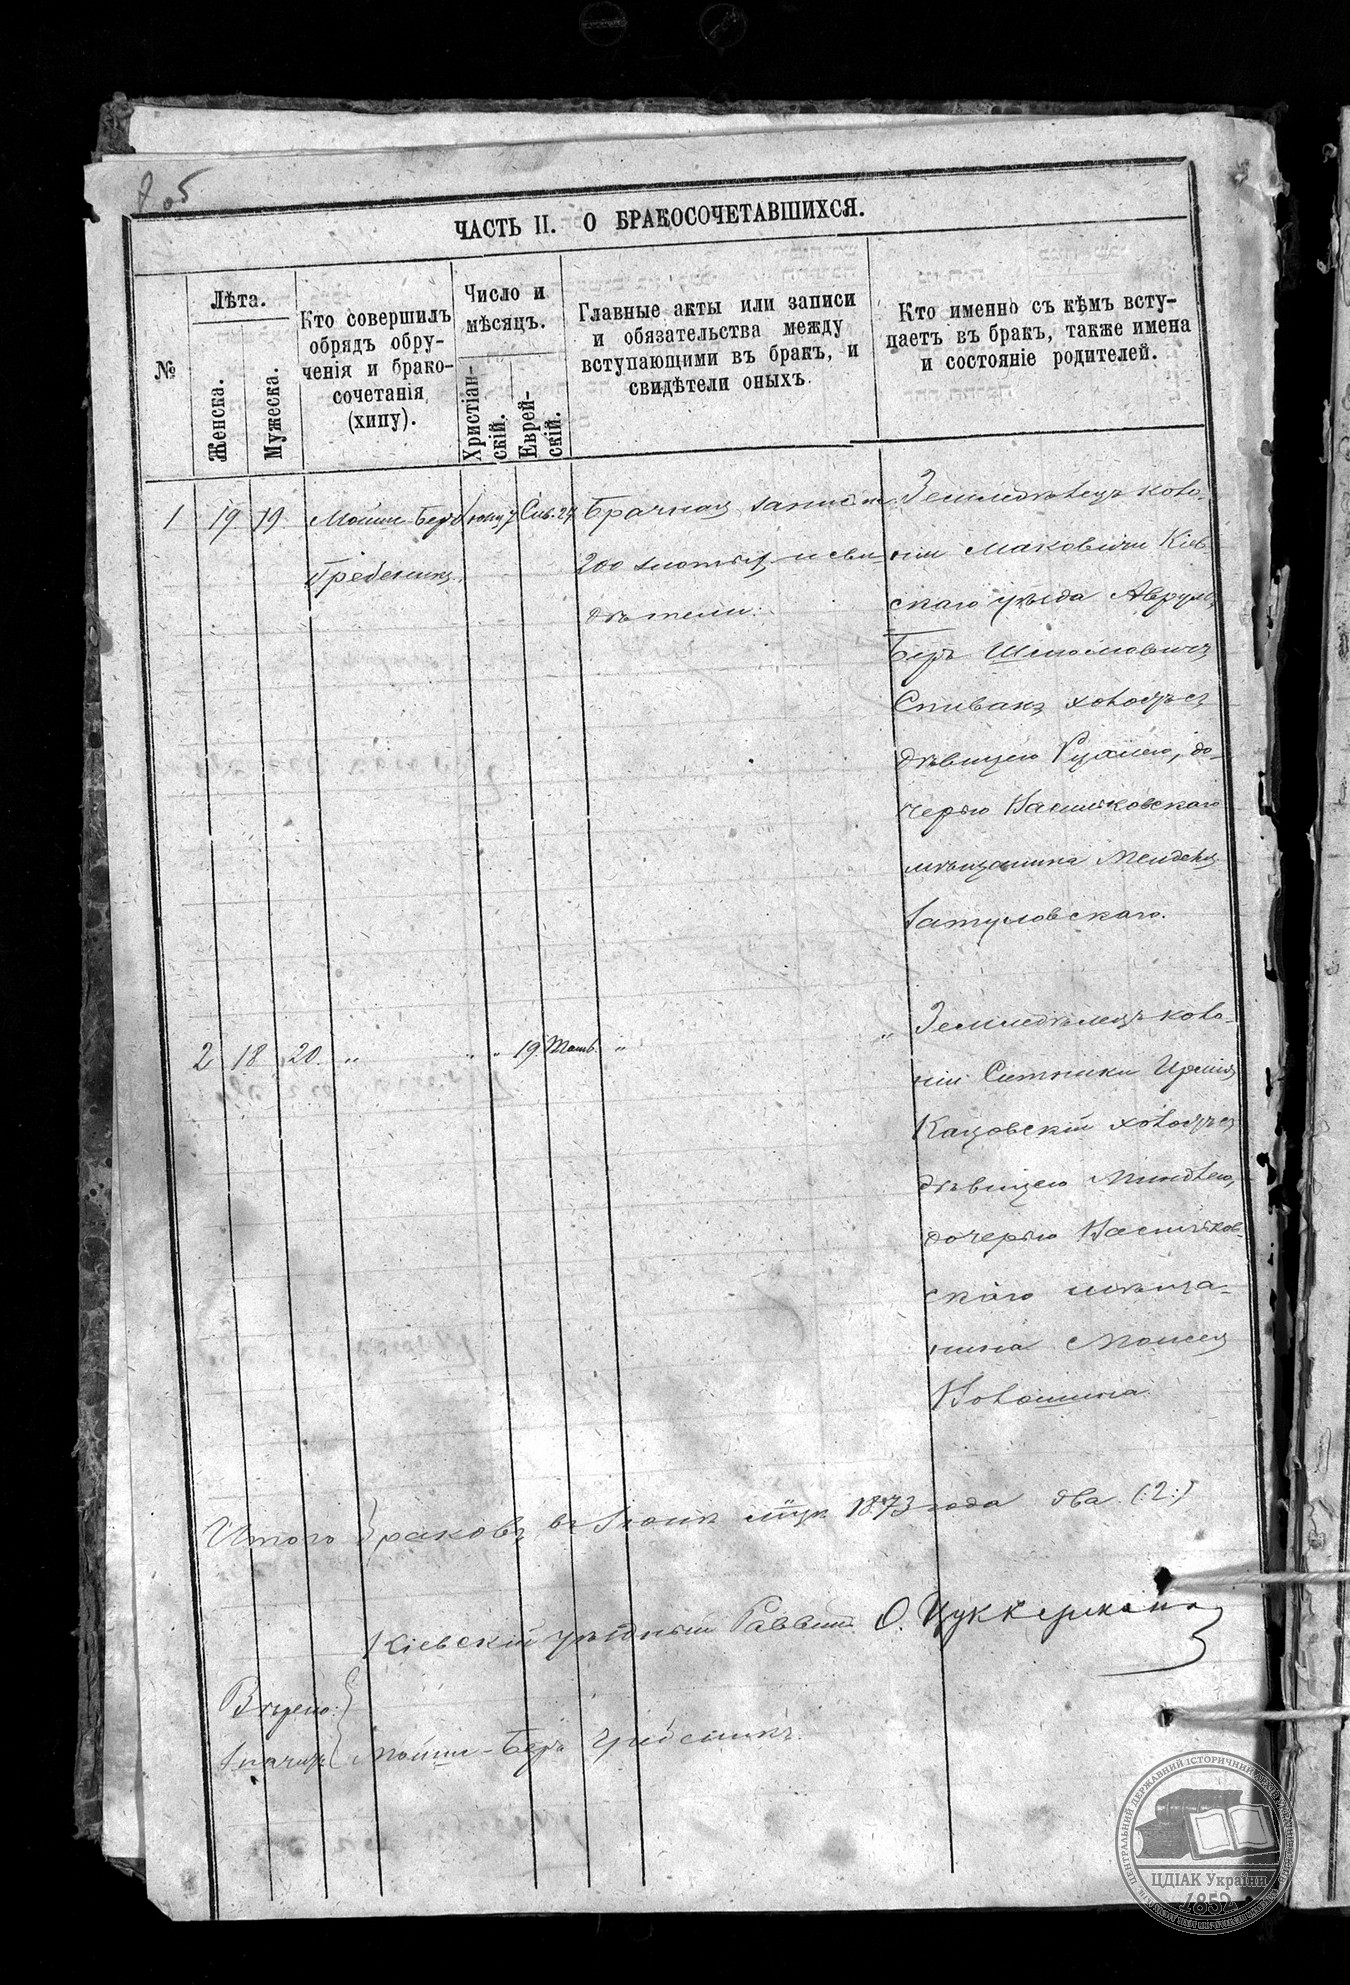 ЧАСТЬ II. О БРАКОСОЧЕТАВШИХСЯ.
№
Лѣта.
Женска.
Мужеска.
Кто совершилъ
обрядъ обру-
ченія и брако-
сочетанія
(хипу).
Число и
мѣсяцъ.
Христіан-
скій.
Еврей-
скій.
Главные акты или записи
и обязательства между
вступающими въ бракъ, и
свидѣтели оныхъ.
Кто именно съ кѣмъ всту-
паетъ въ бракъ, также имена
и состояніе родителей.
1 19 19 Мойше-Беръ
Гребеникъ
Сив. 24
Брачная запись на
200 злотыхъ и сви-
дѣтели:
Земледѣлецъ коло-
ніи Маковичи Кіев-
скаго уѣзда Аврумъ
Беръ Шлиомовичъ
Спивакъ холостъ съ
дѣвицею Рухлею, до-
черью Васильковскаго
мѣщанина Менделя
Затуловскаго.
2 18 20 " " " 19 " "
Земледѣлецъ коло-
ніи Ситники
Кацовскій холостъ съ
дѣвицею Миндлею,
дочерью Васильков-
скаго мѣща-
нина Моисея
Волошина
Итого браковъ въ Іюнѣ мцѣ 1873 года два (:2:)
Кіевскій уѣздный Раввинъ О. Цуккерманъ
Вѣрно:
Мойше-Беръ Гребеникъ.
ЦЕНТРАЛЬНИЙ ДЕРЖАВНИЙ ІСТОРИЧНИЙ АРХІВ УКРАЇНИ
ЦДІАК України
1852